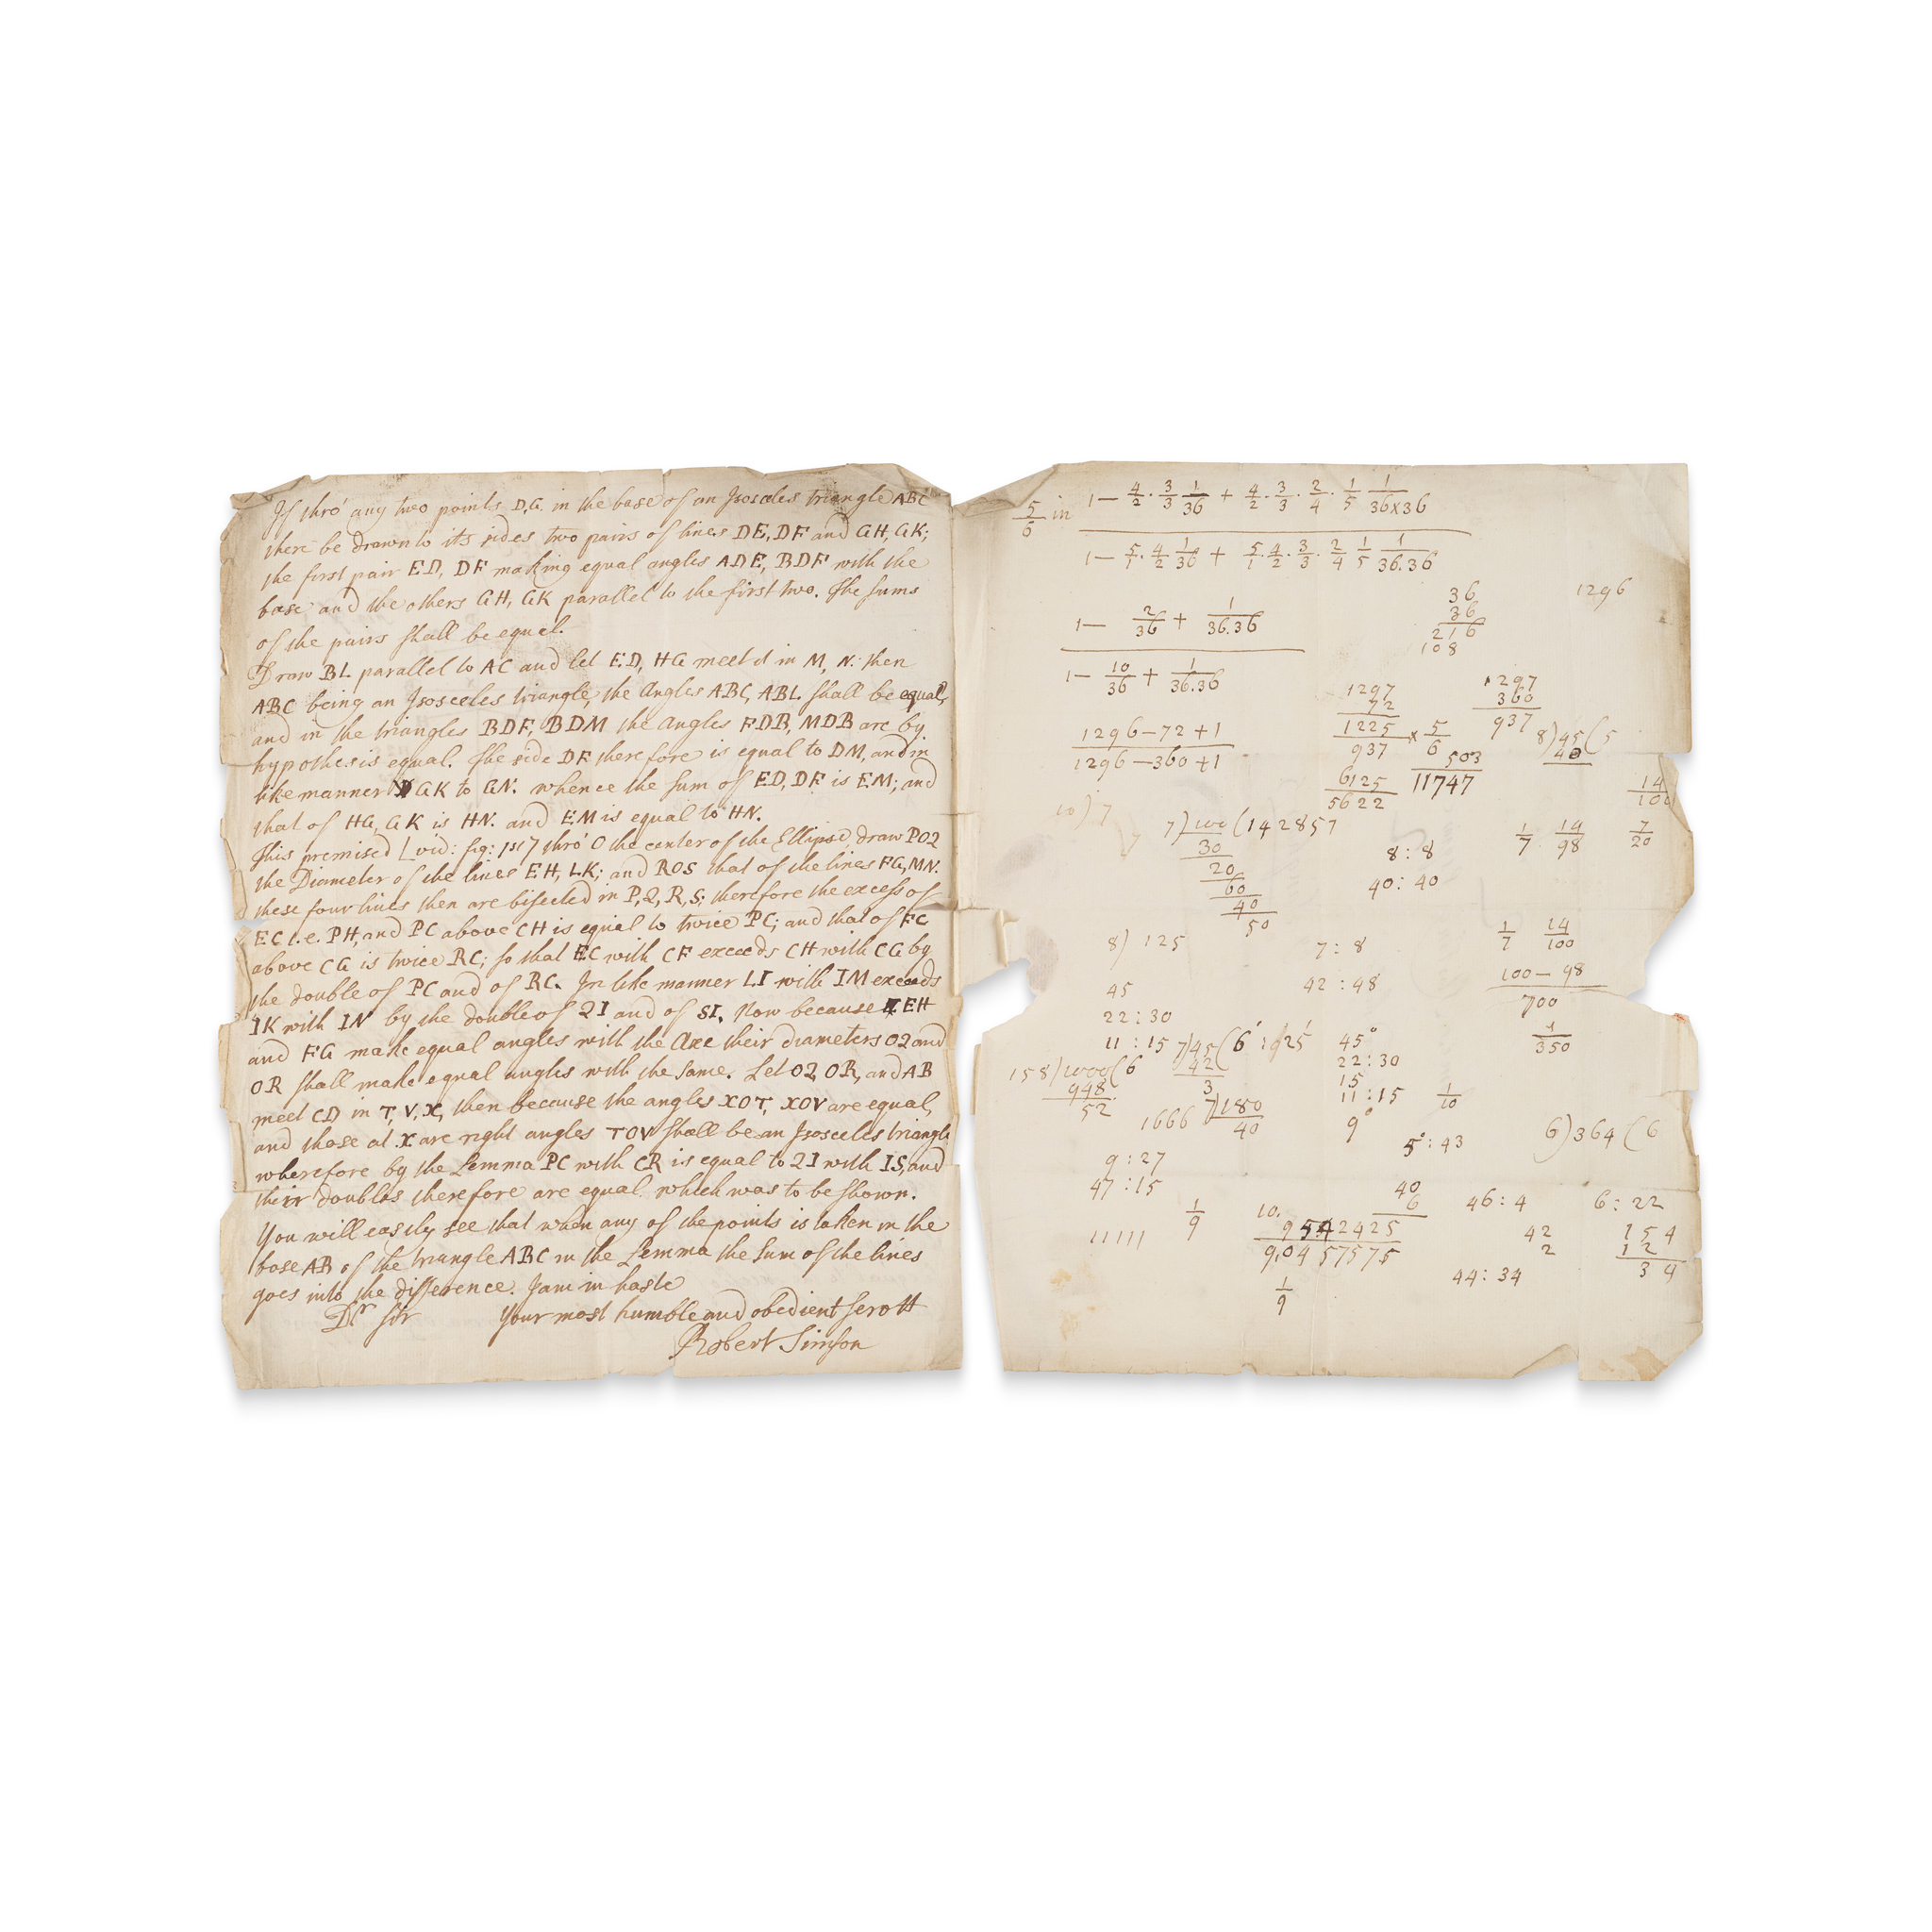 If thro' any two points D, G. in the base of an Isosceles triangle ABC
there be drawn to its sides two pairs of lines DE, DF and GH, GK;
the first pair ED, DF making equal angles ADE, BDF with the
base and the others GH, GK parallel to the first two. The sums
of the pairs shall be equal.
Draw BL parallel to AC and let ED, HG meet it in M, N. then
ABC being an Isosceles triangle, the Angles ABC, ABL shall be equal,
and in the triangles BDF, BDM the Angles FDB, MDB are by
hypothesis equal. The side DF therefore is equal to DM, and in
like manner GK to GN. whence the sum of ED, DF is EM; and
that of HG, GK is HN. and EM is equal to HN.
This premised [vid: fig: 1st] thro' O the center of the Ellipse, draw POQ
the Diameter of the lines EH, LK; and ROS that of the lines FG, MN.
these four lines then are bisected in P, Q, R, S; therefore the excess of
EC i.e. PH, and PC above CH is equal to twice PC; and that of FC
above CG is twice RC; so that EC with CF exceeds CH with CG by
the double of PC and of RC. In like manner LI with IM exceeds
IK with IN by the double of QI and of SI. Now because EH
and FG make equal angles with the Axe their diameters OQ and
OR shall make equal angles with the same. Let OQ, OR, and AB
meet CD in T, V, X, then because the angles XOT, XOV are equal,
and those at X are right angles TOV shall be an Isosceles triangle
wherefore by the Lemma PC with CR is equal to QI with IS, and
their doubles therefore are equal. which was to be shown.
You will easily see that when any of the points is taken in the
base AB of the triangle ABC in the Lemma the Sum of the lines
goes into the difference. I am in haste
Dr Sir Your most humble and obedient servtt
Robert Simson
5/6 in 1 — 4/2 . 3/3 1/36 + 4/2 . 3/3 . 2/4 . 1/5 1/36x36
1 — 5/1 . 4/2 1/36 + 5/1 . 4/2 . 3/3 . 2/4 1/5 1/36.36
36 1296
36
216
108
1 — 2/36 + 1/36.36
1 — 10/36 + 1/36.36
1297 1297
72 360
1225 937
937 x 5/6
1296 — 72 + 1
1296 — 360 + 1
8)45(5
40
503
6125 11747
5622
14/100
10)7
7)100(142857
30
20
60
40
50
1/7 14/98 7/20
8 : 8
40 : 40
8) 125 7 : 8 1/7 14/100
45 42 : 48 100 — 98
700
22 : 30 1/350
11 : 15 7)45(6 45°
42 22 : 30
3 15
158)1000(6 11 : 15 1/10
948
52
1666 7)180 9°
40
5° : 43 6)364(6
9 : 27
47 : 15
40 46 : 4 6 : 22
6
1/9 10.
11111 9542425 42 154
9,0457575 2 12
34
44 : 34
1/9